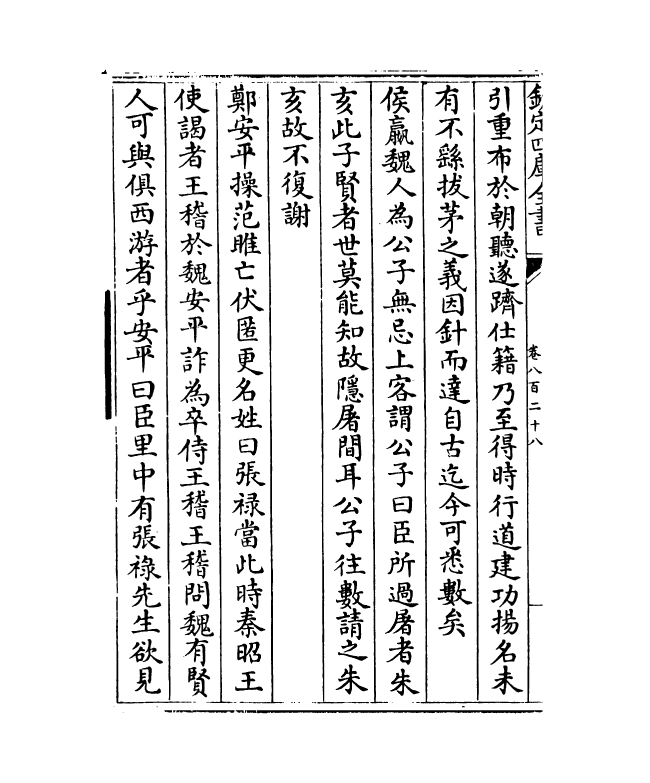 欽定四庫全書
卷八百二十八
引重布於朝聽遂躋仕籍乃至得時行道建功揚名未
有不繇拔茅之義因針而達自古迄今可悉數矣
侯嬴魏人為公子無忌上客謂公子曰臣所過屠者朱
亥此子賢者世莫能知故隱屠間耳公子往數請之朱
亥故不復謝
鄭安平操范睢亡伏匿更名姓曰張祿當此時秦昭王
使謁者王稽於魏安平詐為卒侍王稽王稽問魏有賢
人可與俱西游者乎安平曰臣里中有張祿先生欲見